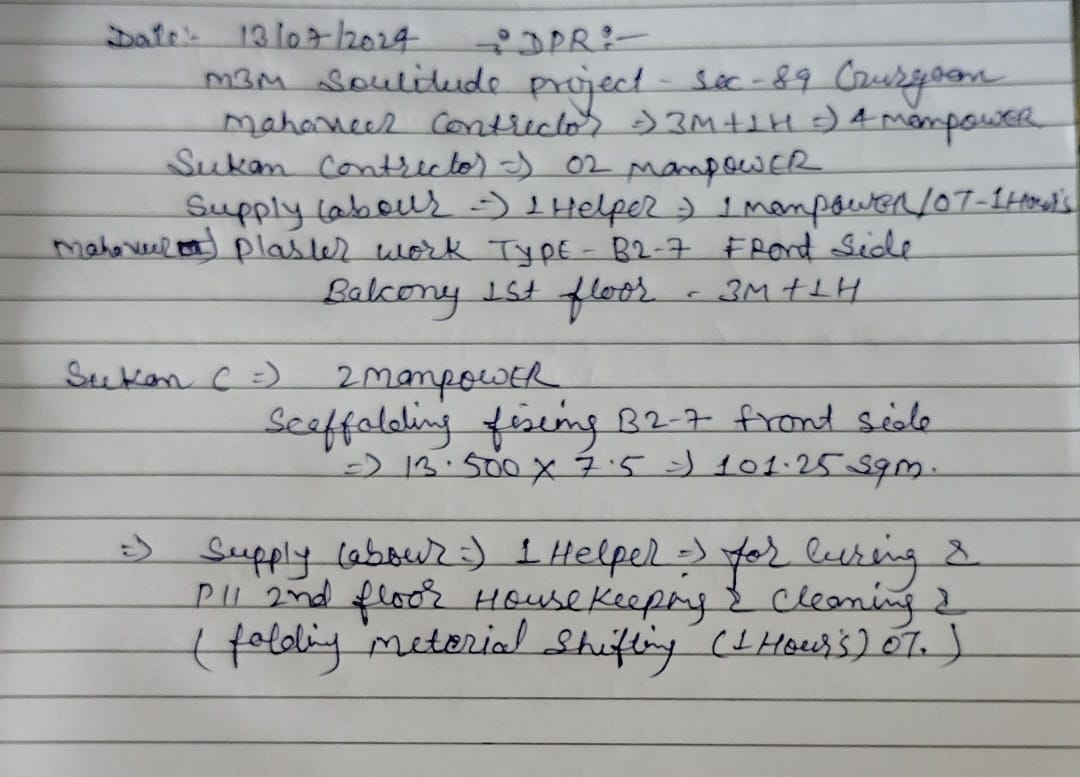 Date:- 13/07/2024 → DPR:-
M3M Soulitude project - Sec - 89 Gurgaon
Mahaveer Contrector => 3M+1H => 4 manpowER
Sukan Contrector => 02 manpowER
Supply labour => 1 Helper => 1 manpowER/OT-1Hour's
Mahaveer => plaster work TypE - B2-7 FRont Side
Balcony 1st floor - 3M+1H
Sukan C => 2 manpowER
Scaffolding fixing B2-7 front side
=> 13.500 x 7.5 => 101.25 sqm.
=> Supply labour => 1 Helper => for Curing &
P11 2nd floor House Keeping & Cleaning &
( folding meterial Shifting (1 Hour's) OT. )